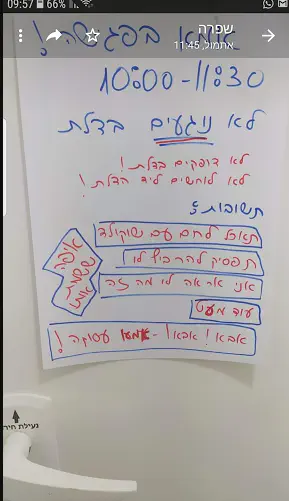 09:57 66%
שפרה
אתמול, 11:45
אמא בפגישה!
10:00-11:30
לא נוגעים בדלת
לא דופקים בדלת!
לא לוחשים ליד הדלת!
תשובות:
תאכל לחם עם שוקולד
תפסיק להרביץ לו
אני אראה לו מה זה
עוד מעט
אבא! אבא! - אמא עסוקה!
איפה
ששמת
אותו
נעילת חירום